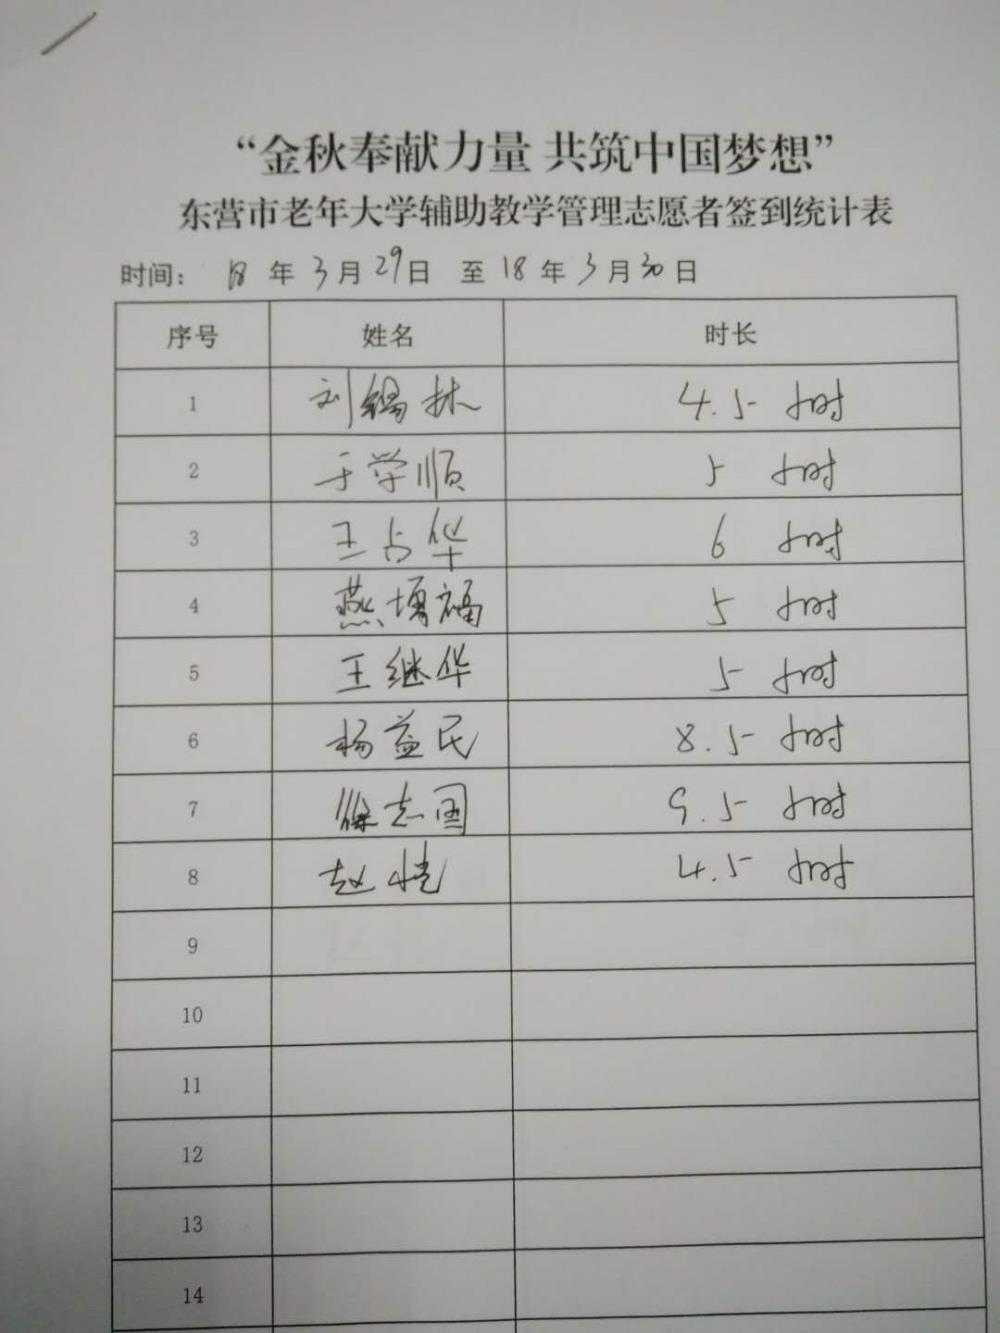 “金秋奉献力量 共筑中国梦想”
东营市老年大学辅助教学管理志愿者签到统计表
时间： 18 年 3 月 29 日 至 18 年 3 月 30 日
序号 姓名 时长
1 刘锡林 4.5 小时
2 于学顺 5 小时
3 王占华 6 小时
4 燕增福 5 小时
5 王继华 5 小时
6 杨益民 8.5 小时
7 徐志国 9.5 小时
8 赵恺 4.5 小时
9
10
11
12
13
14